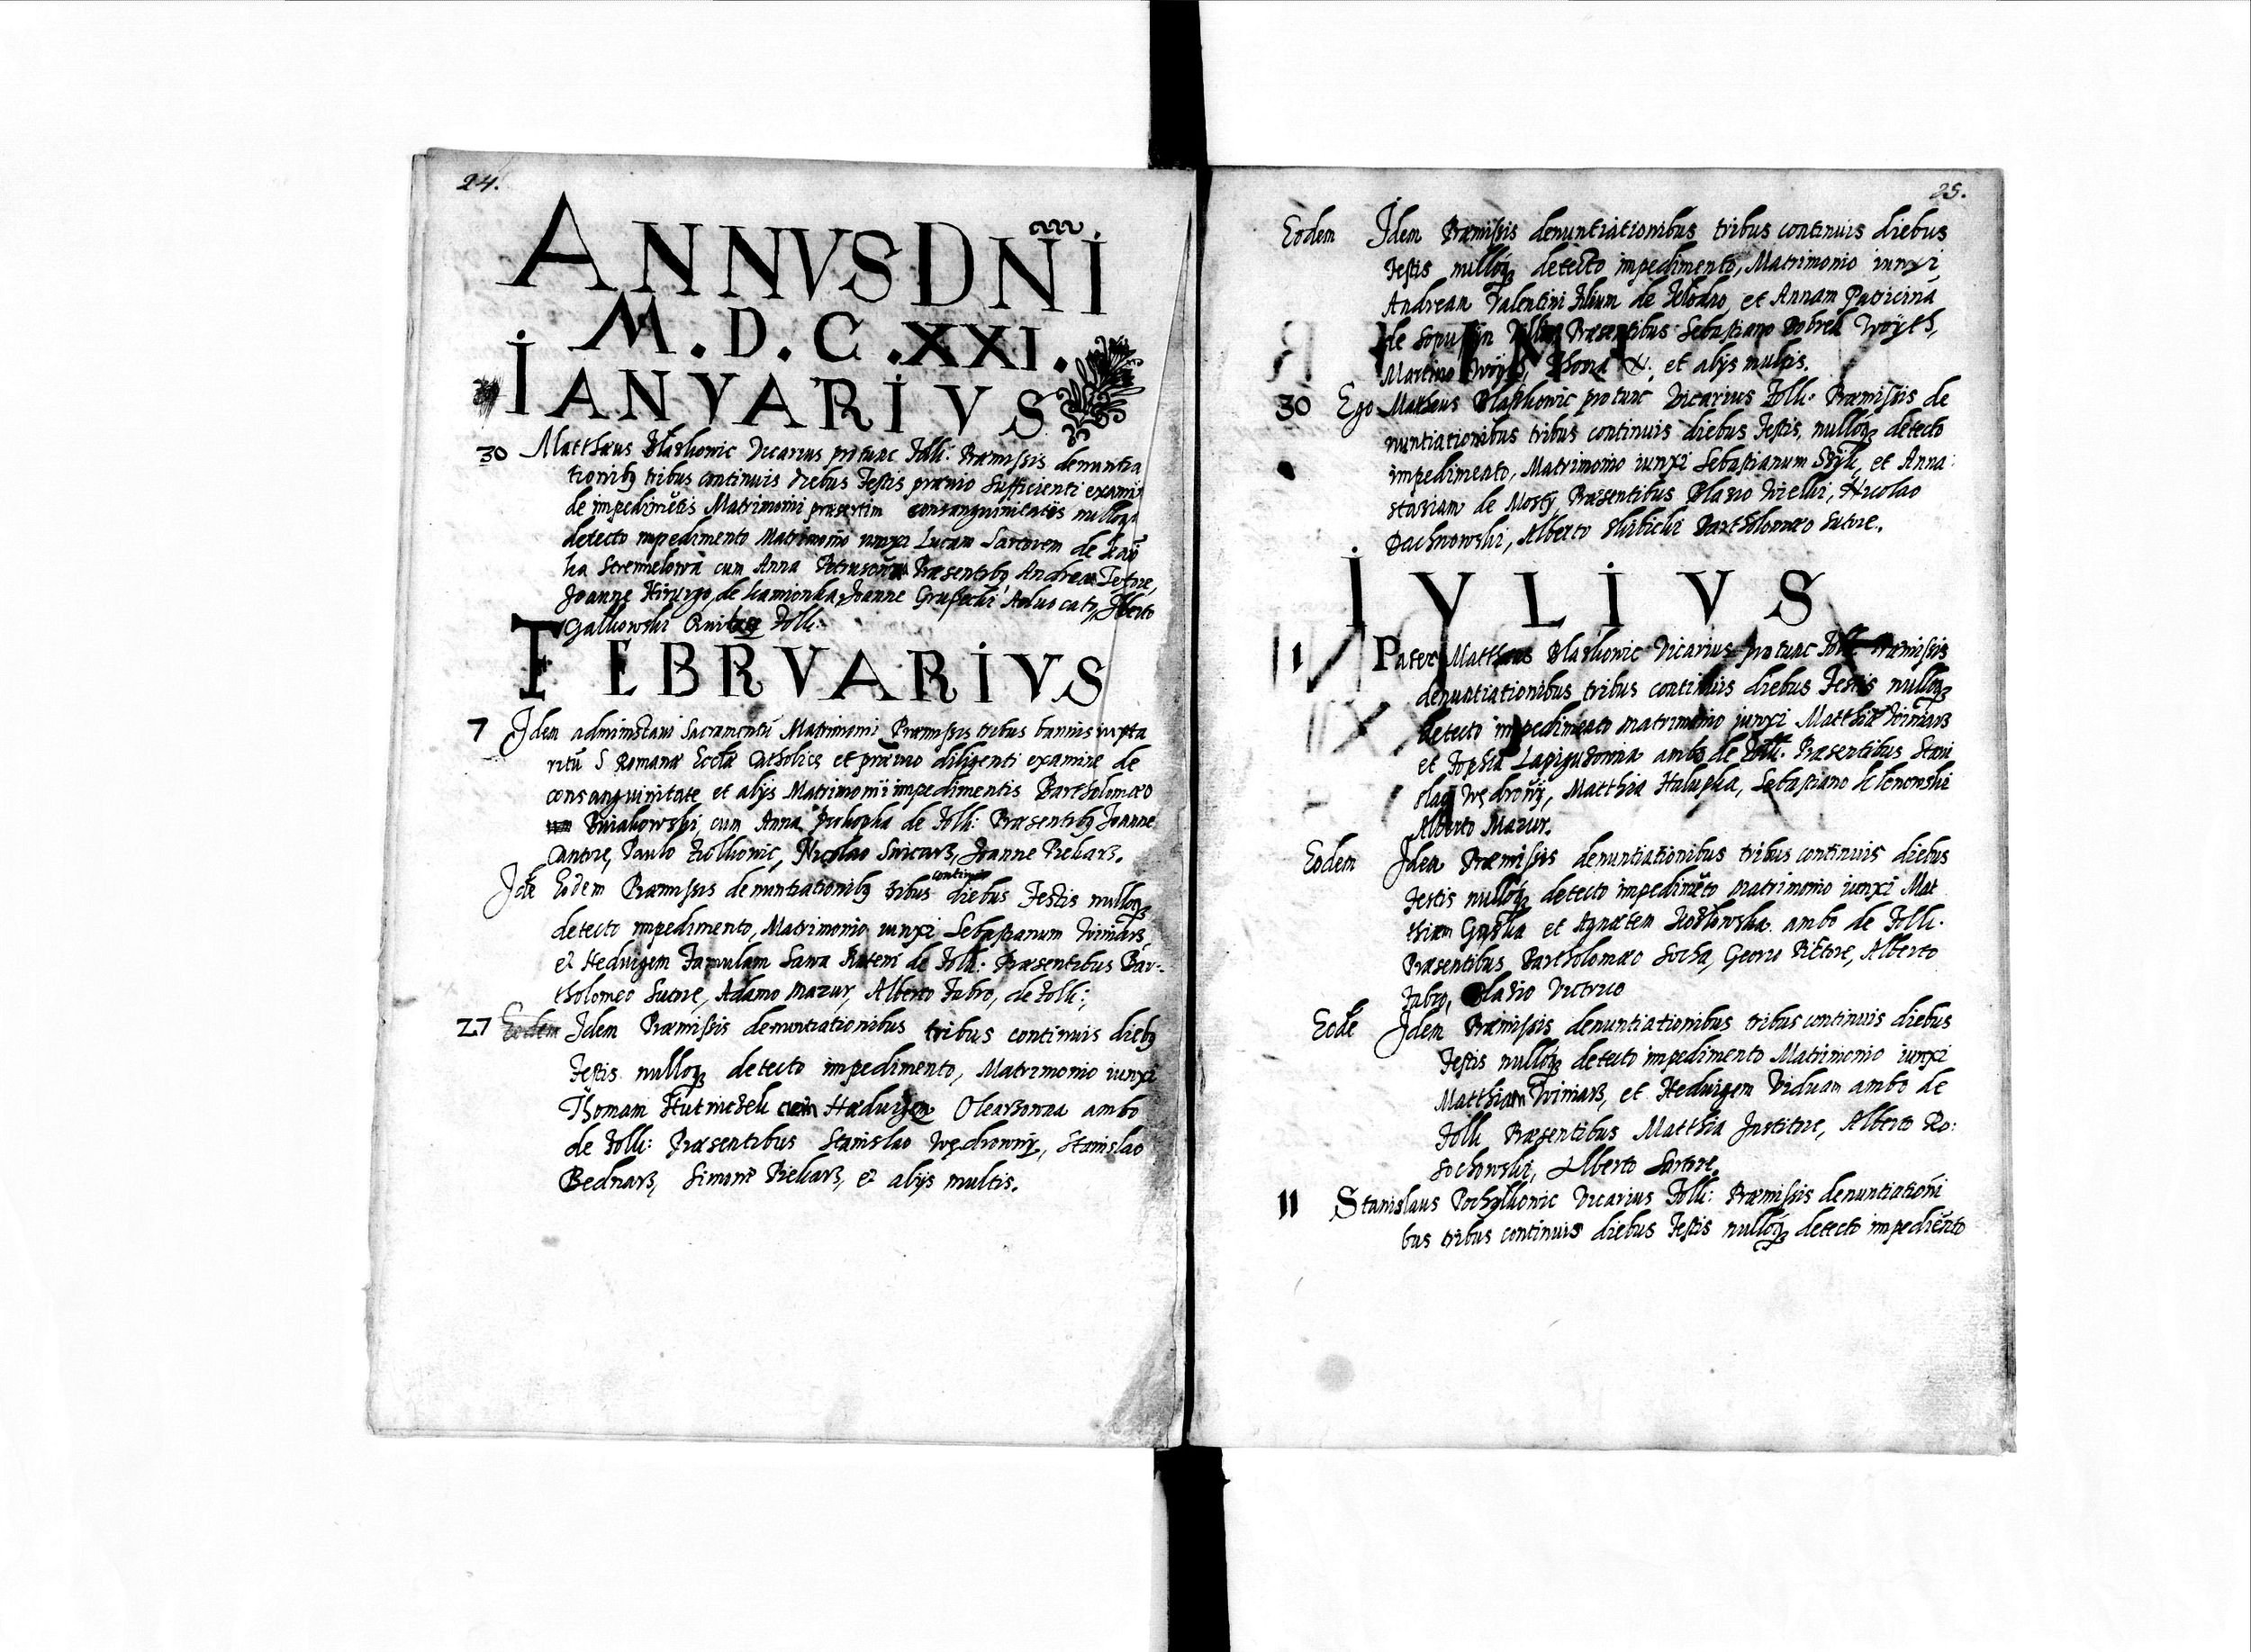 24.
ANNVS DÑI
M.D.C.XXI.
IANVARIVS
30 Matthæus Blaskowic Vicarius pro tunc Zolk: Præmissis denuntia
tionibq tribus continuis diebus Festis prævio sufficienti exami
de impedimētis Matrimonii præsertim consanguinitatis nulloqz
detecto impedimento Matrimonio iunxi Lucam Sartorem de
cum Anna Præsentibq Andrea Textore,
Joanne de Kamionka, Joanne Advocato, Alberto
Galkowski Zolk:
FEBRVARIVS
7 Idem administravi Sacramentū Matrimonii Præmissis tribus bannis iuxta
ritū S Romanæ Ecclæ Catholicæ et prævio diligenti examine de
consanguinitate et alijs Matrimonii impedimentis Bartholomæo
cum Anna Prokopka de Zolk: Præsentibq Joanne
Cantore, Paulo Nicolao Joanne Piekarz.
Idē Eodem Præmissis denuntiationibq tribus continuis diebus Festis nulloqz
detecto impedimento, Matrimonio iunxi Sebastianum Winiarz
et Hedvigem Famulam Sawa de Zolk: Præsentibus Bar-
tholomeo Sutore, Adamo Mazur, Alberto Fabro, de Zolk:
27 Eodem Idem Præmissis denuntiationibus tribus continuis diebq
Festis nulloqz detecto impedimento, Matrimonio iunxi
Thomam cum Hædvigem Olearzowna ambo
de Zolk: Præsentibus Stanislao Wędrowny, Stanislao
Bednarz, Simone Piekarz, et alijs multis.
25.
Eodem Idem Præmissis denuntiationibus tribus continuis diebus
Festis nulloqz detecto impedimento, Matrimonio iunxi
Andream Valentini Filium de et Annam
de Præsentibus Sebastiano Dobrek Woyth,
Martino et alijs multis.
30 Ego Mathæus Blaskowic pro tunc Vicarius Zolk: Præmissis de
nuntiationibus tribus continuis diebus Festis, nulloqz detecto
impedimento, Matrimonio iunxi Sebastianum et Anna:
stasiam de Mosty Præsentibus Blasio Nicolao
Dachnowski, Alberto Bartholomæo Sutore.
IVLIVS
11 Pater Matthæus Blaskowic Vicarius pro tunc Zolk: Præmissis
denuntiationibus tribus continuis diebus Festis nulloqz
detecto impedimento matrimonio junxi Matthiā Winiarz
et Zophia ambo de Zolk: Præsentibus Stani
slao Wędrowny, Matthia Halupka, Sebastiano Klenowski
Alberto Mazur.
Eodem Idem Præmissis denuntiationibus tribus continuis diebus
Festis nulloqz detecto impedimēto Matrimonio iunxi Mat
thiam et Agnetem Kozlowska ambo de Zolk:
Præsentibus Bartholomæo Socha, Georio Pictore, Alberto
Fabro, Blasio Vietrico
Eodē Idem Præmissis denuntiationibus tribus continuis diebus
Festis nulloqz detecto impedimento Matrimonio iunxi
Matthiam Winiarz, et Hedvigem Viduam ambo de
Zolk Præsentibus Matthia Institore, Alberto Ro:
sochowski, Alberto Sartore.
11 Stanislaus Pochylkowic Vicarius Zolk: Præmissis denuntiationi
bus tribus continuis diebus Festis nulloqz detecto impediēnto